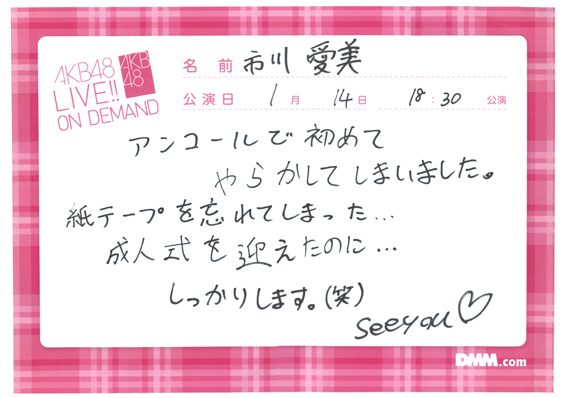 AKB48
LIVE!!
ON DEMAND
AKB
48
名 前 市川 愛美
公演日 1月 14日 18:30 公演
アンコールで初めて
やらかしてしまいました。
紙テープを忘れてしまった…
成人式を迎えたのに…
しっかりします。(笑)
seeyou♡
DMM.com